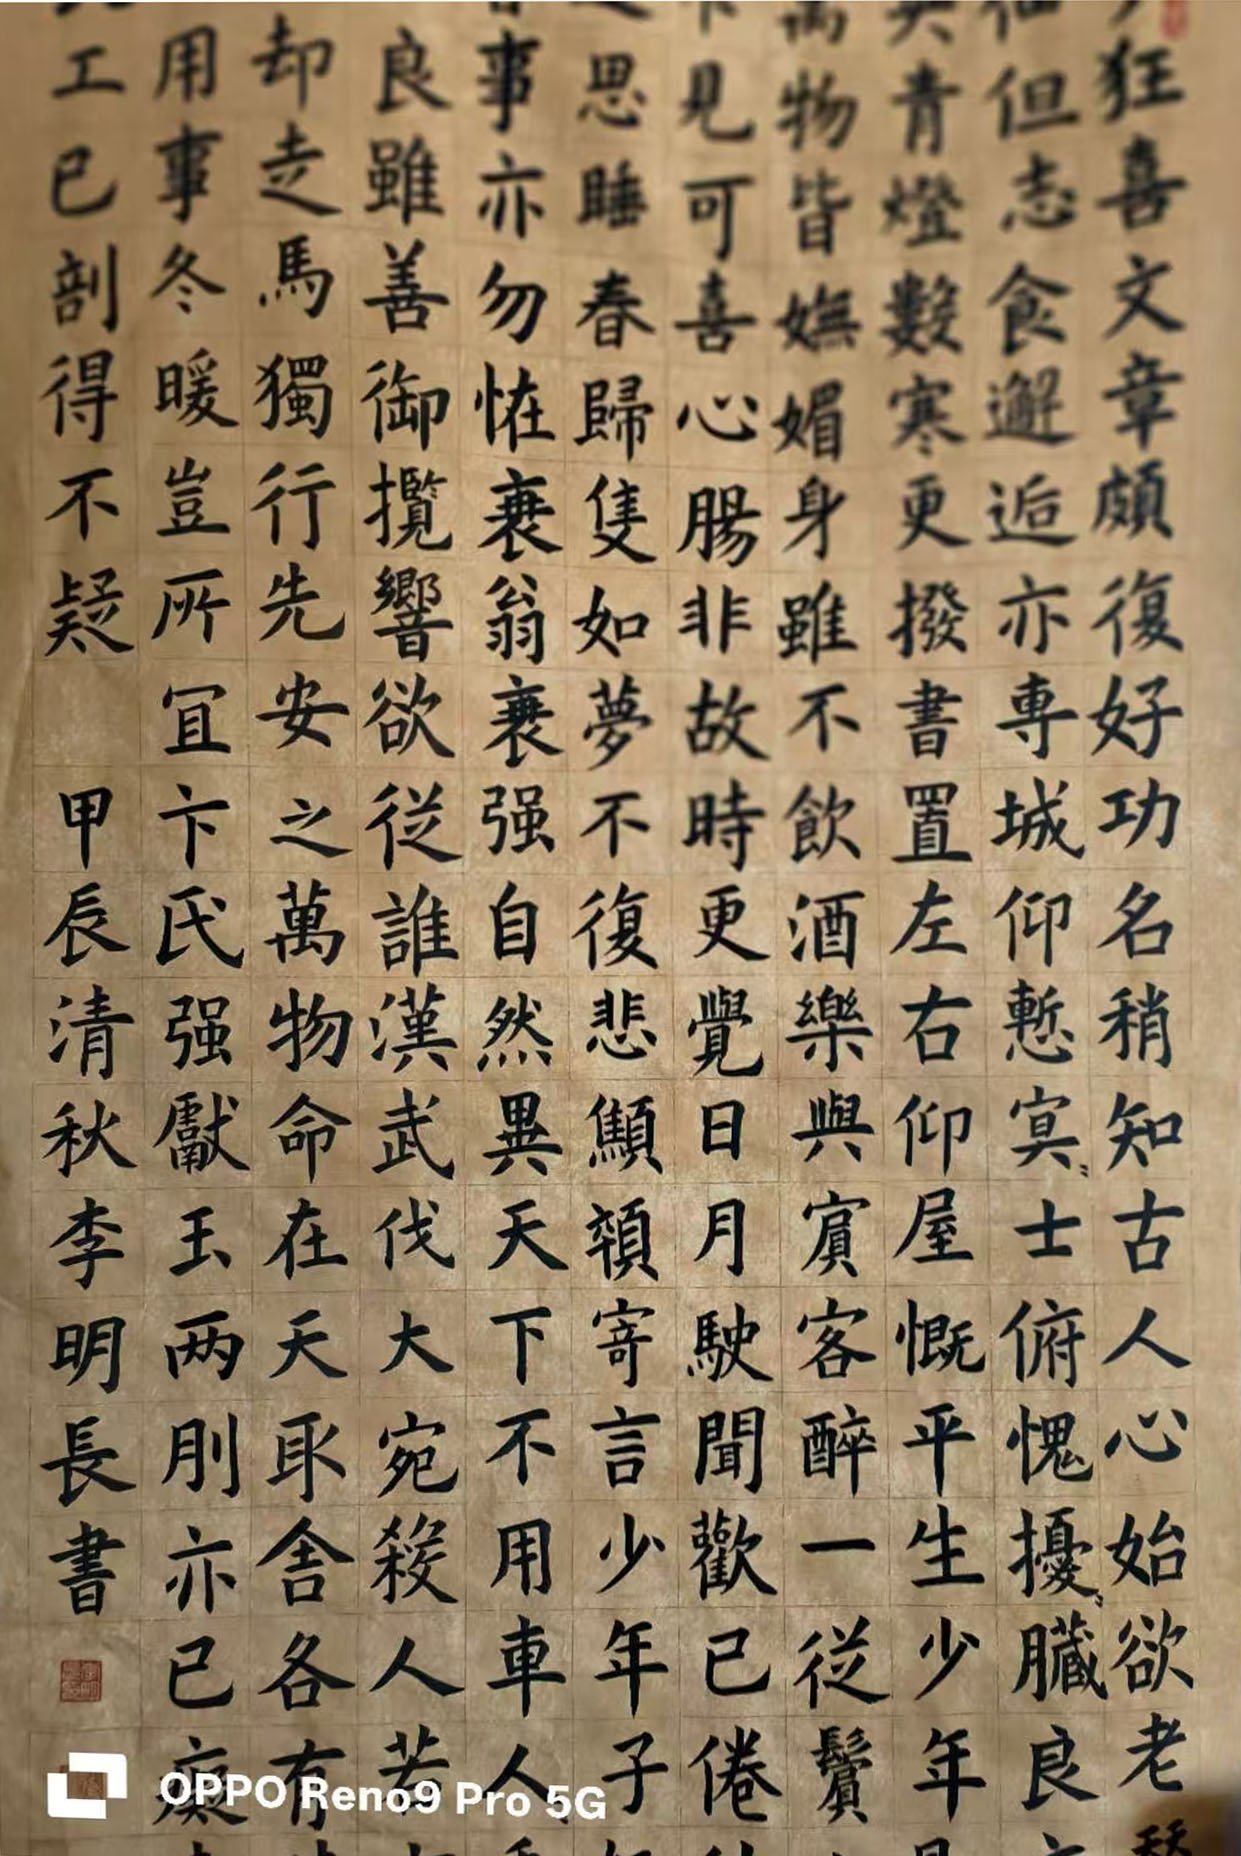 狂喜文章頗復好功名稍知古人心始欲老
但志食邂逅亦専城仰慙冥〻士俯愧擾〻臓良
青燈數寒更撥書置左右仰屋慨平生少年
物皆嫵媚身雖不飲酒樂與賓客醉一從鬢
見可喜心腸非故時更覺日月駛聞歡已倦
思睡春歸隻如夢不復悲顦顇寄言少年子
事亦勿恠衰翁衰强自然異天下不用車人
良雖善御攬響欲從誰漢武伐大宛殺人若
却走馬獨行先安之萬物命在天取舍各有
用事冬暖豈所宜卞氏强獻玉两刖亦已
工已剖得不疑 甲辰清秋李明長書
OPPO Reno9 Pro 5G